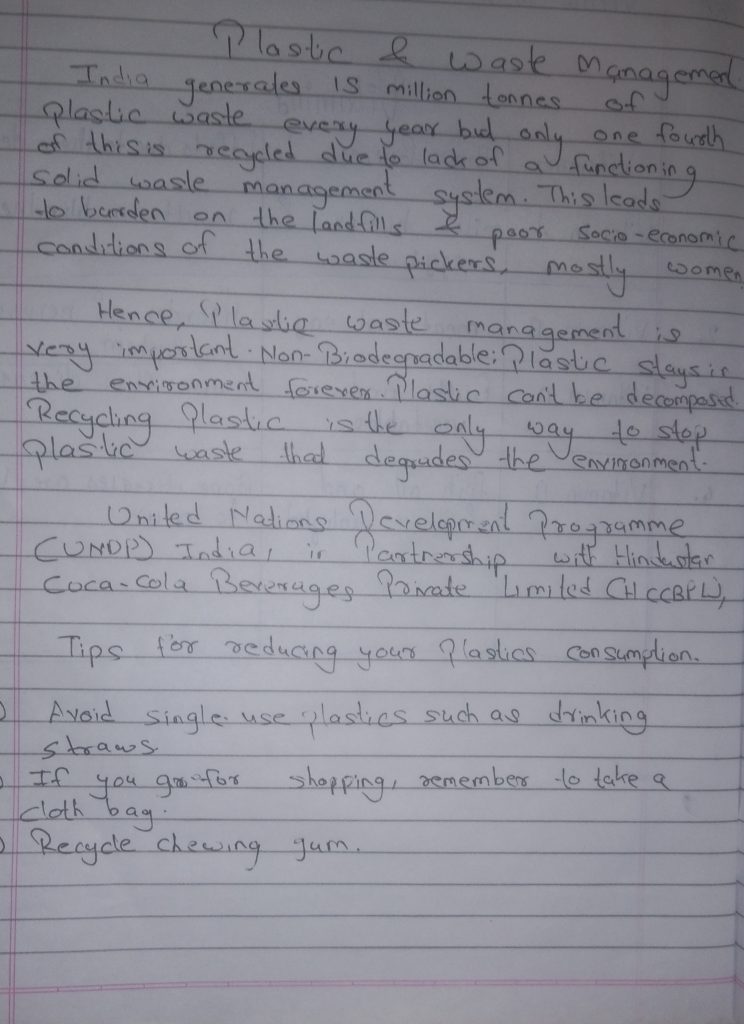 Plastic & Waste Management
India generates 15 million tonnes of
Plastic waste every year but only one fourth
of this is recycled due to lack of a functioning
solid waste management system. This leads
to burden on the landfills & poor Socio-economic
conditions of the waste pickers, mostly women
Hence, Plastic waste management is
very important. Non-Biodegradable: Plastic stays in
the environment forever. Plastic can't be decomposed.
Recycling Plastic is the only way to stop
Plastic waste that degrades the environment.
United Nations Development Programme
(UNDP) India, in Partnership with Hindustan
Coca-Cola Beverages Private Limited (HCCBPL),
Tips for reducing your Plastics consumption.
Avoid single use plastics such as drinking
straws
If you go for shopping, remember to take a
cloth bag.
Recycle chewing gum.